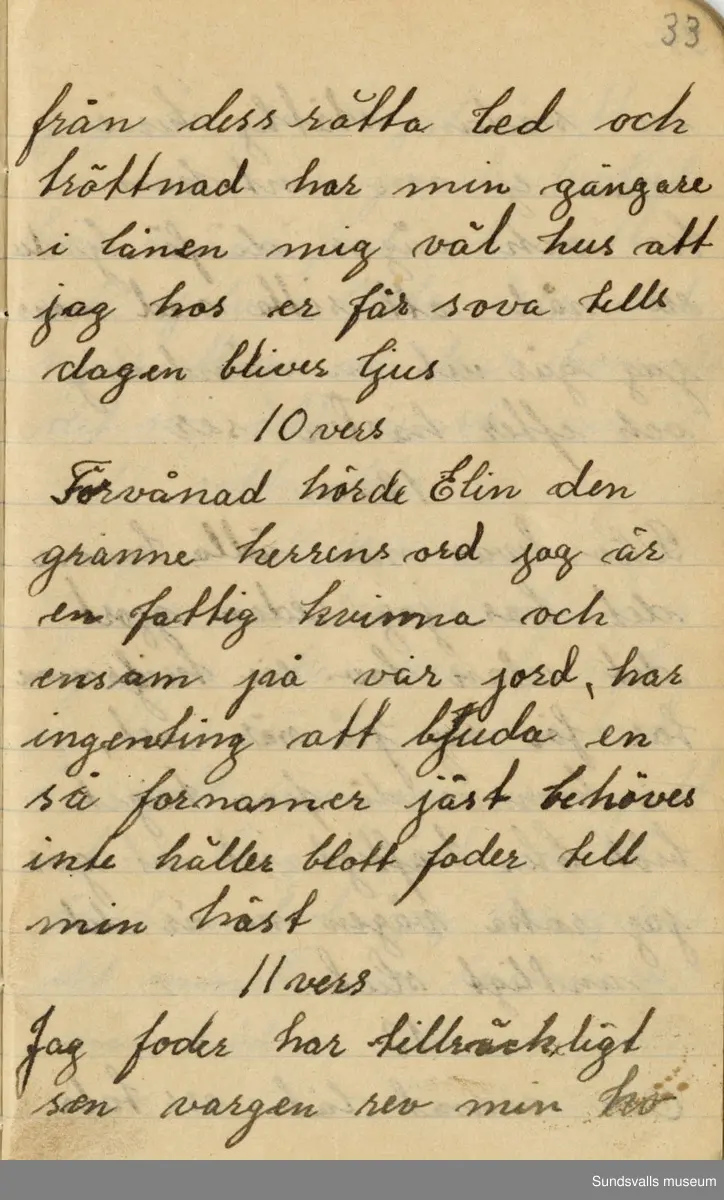 33
från dess rätta led och
tröttnad har min gångare
i lånen mig väl hus att
jag hos er får sova tills
dagen bliver ljus
10 vers
Förvånad hörde Elin den
granne herrens ord jag är
en fattig kvinna och
ensam på vår jord, har
ingenting att bjuda en
så fornamer jäst behöves
inte häller blott foder till
min häst
11 vers
Jag foder har tillräckligt
sen vargen rev min ko
Sundsvalls museum